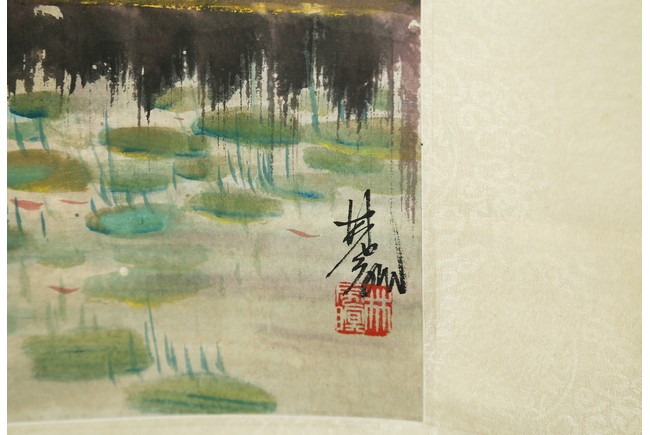 林風眠
林風瞑